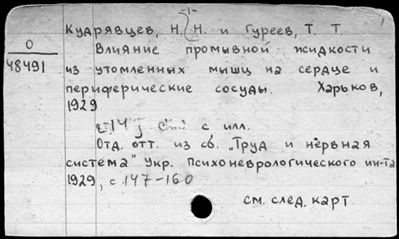 Кудрявцев, Н. Н. и Гуреев, Т. Т.
О
48491
Влияние промывной жидкости
из утомленных мышц на сердце и
периферические сосуды. Харьков,
1929
14 с илл.
Отд. отт. из сб. „Труд и нервная
система" Укр. Психоневрологического ин-та
1929, с 147-160
см. след. карт